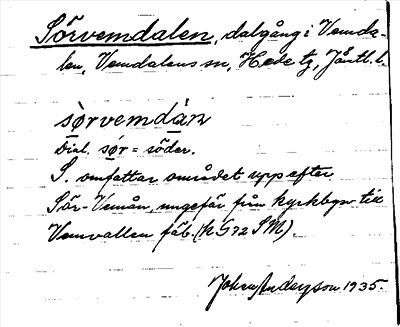 Sörvemdalen, dalgång i Vemda-
len, Vemdalens sn, Hede tg, Jämtl. l.
sòrvemdàn
Dial. sør = söder.
S. omfattar området upp efter
Sör-Vemån, ungefär från kyrkbyn till
Vemvallen fäb. (k G72 SM).
John Anderson 1935.